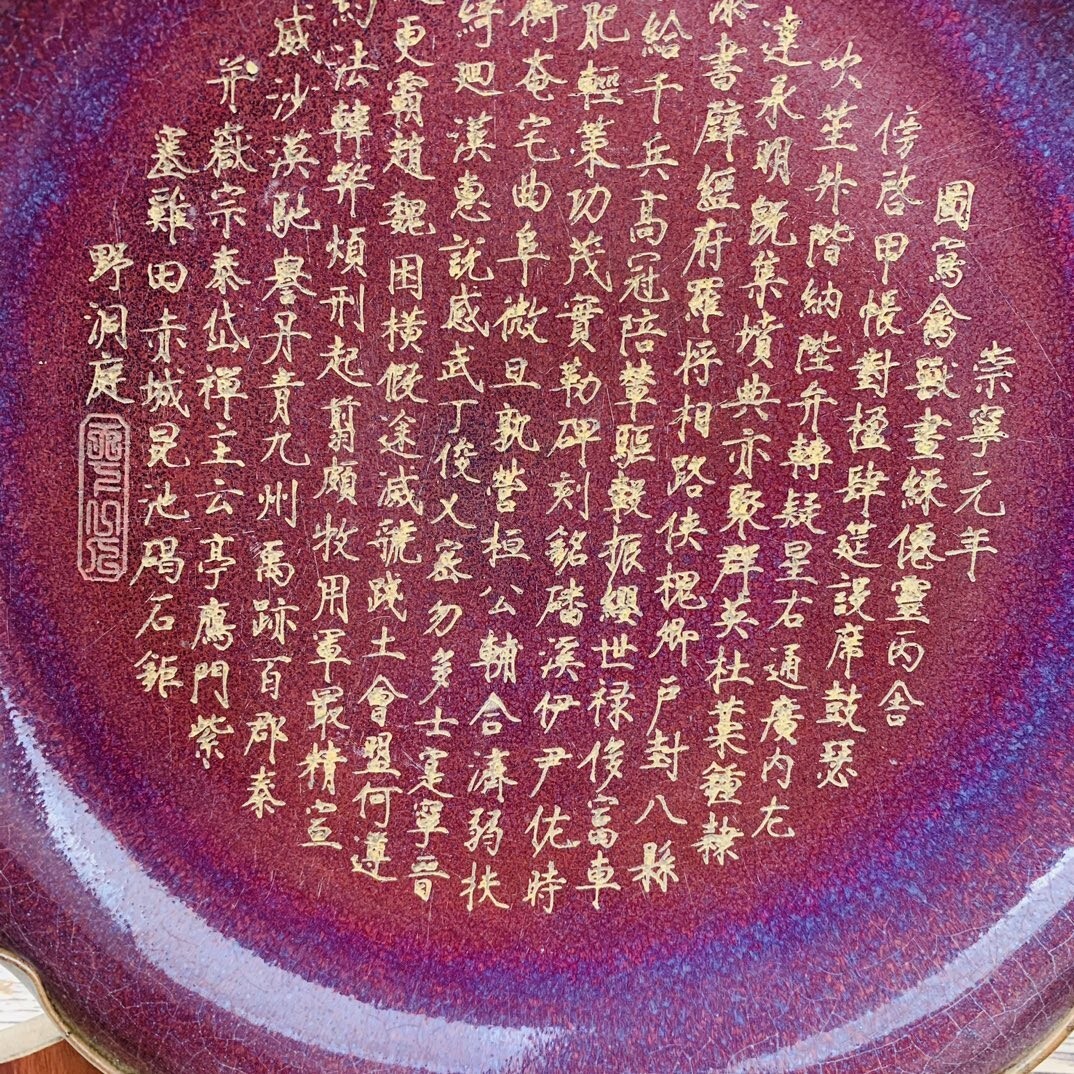 崇寧元年
圖寫禽獸畫綵僊靈丙舍
傍啓甲帳對楹肆筵設席鼓瑟
吹笙升階納陛弁轉疑星右通廣內左
達承明既集墳典亦聚群英杜稾鍾隸
漆書壁經府羅將相路俠槐卿戶封八縣
給千兵高冠陪輦驅轂振纓世祿侈富車
肥輕策功茂實勒碑刻銘磻溪伊尹佐時
衡奄宅曲阜微旦孰營桓公輔合濟弱扶
綺迴漢惠說感武丁俊乂密勿多士寔寧晉
更霸趙魏困橫假途滅虢踐土會盟何遵
約法韓弊煩刑起翦頗牧用軍最精宣
威沙漠馳譽丹青九州禹跡百郡秦
并嶽宗泰岱禪主云亭鴈門紫
塞雞田赤城昆池碣石鉅
野洞庭